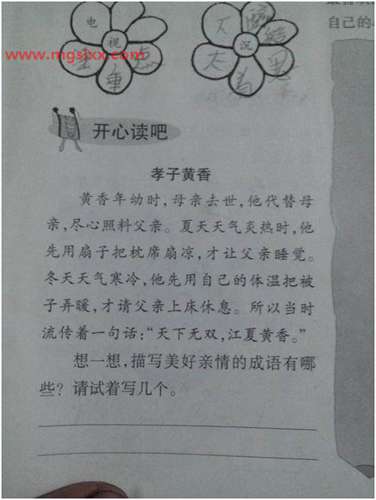 自己的
www.mgslxx.com
电
视
重
点
沉
开心读吧
孝子黄香
黄香年幼时，母亲去世，他代替母
亲，尽心照料父亲。夏天天气炎热时，他
先用扇子把枕席扇凉，才让父亲睡觉。
冬天天气寒冷，他先用自己的体温把被
子弄暖，才请父亲上床休息。所以当时
流传着一句话：“天下无双，江夏黄香。”
想一想，描写美好亲情的成语有哪
些？请试着写几个。